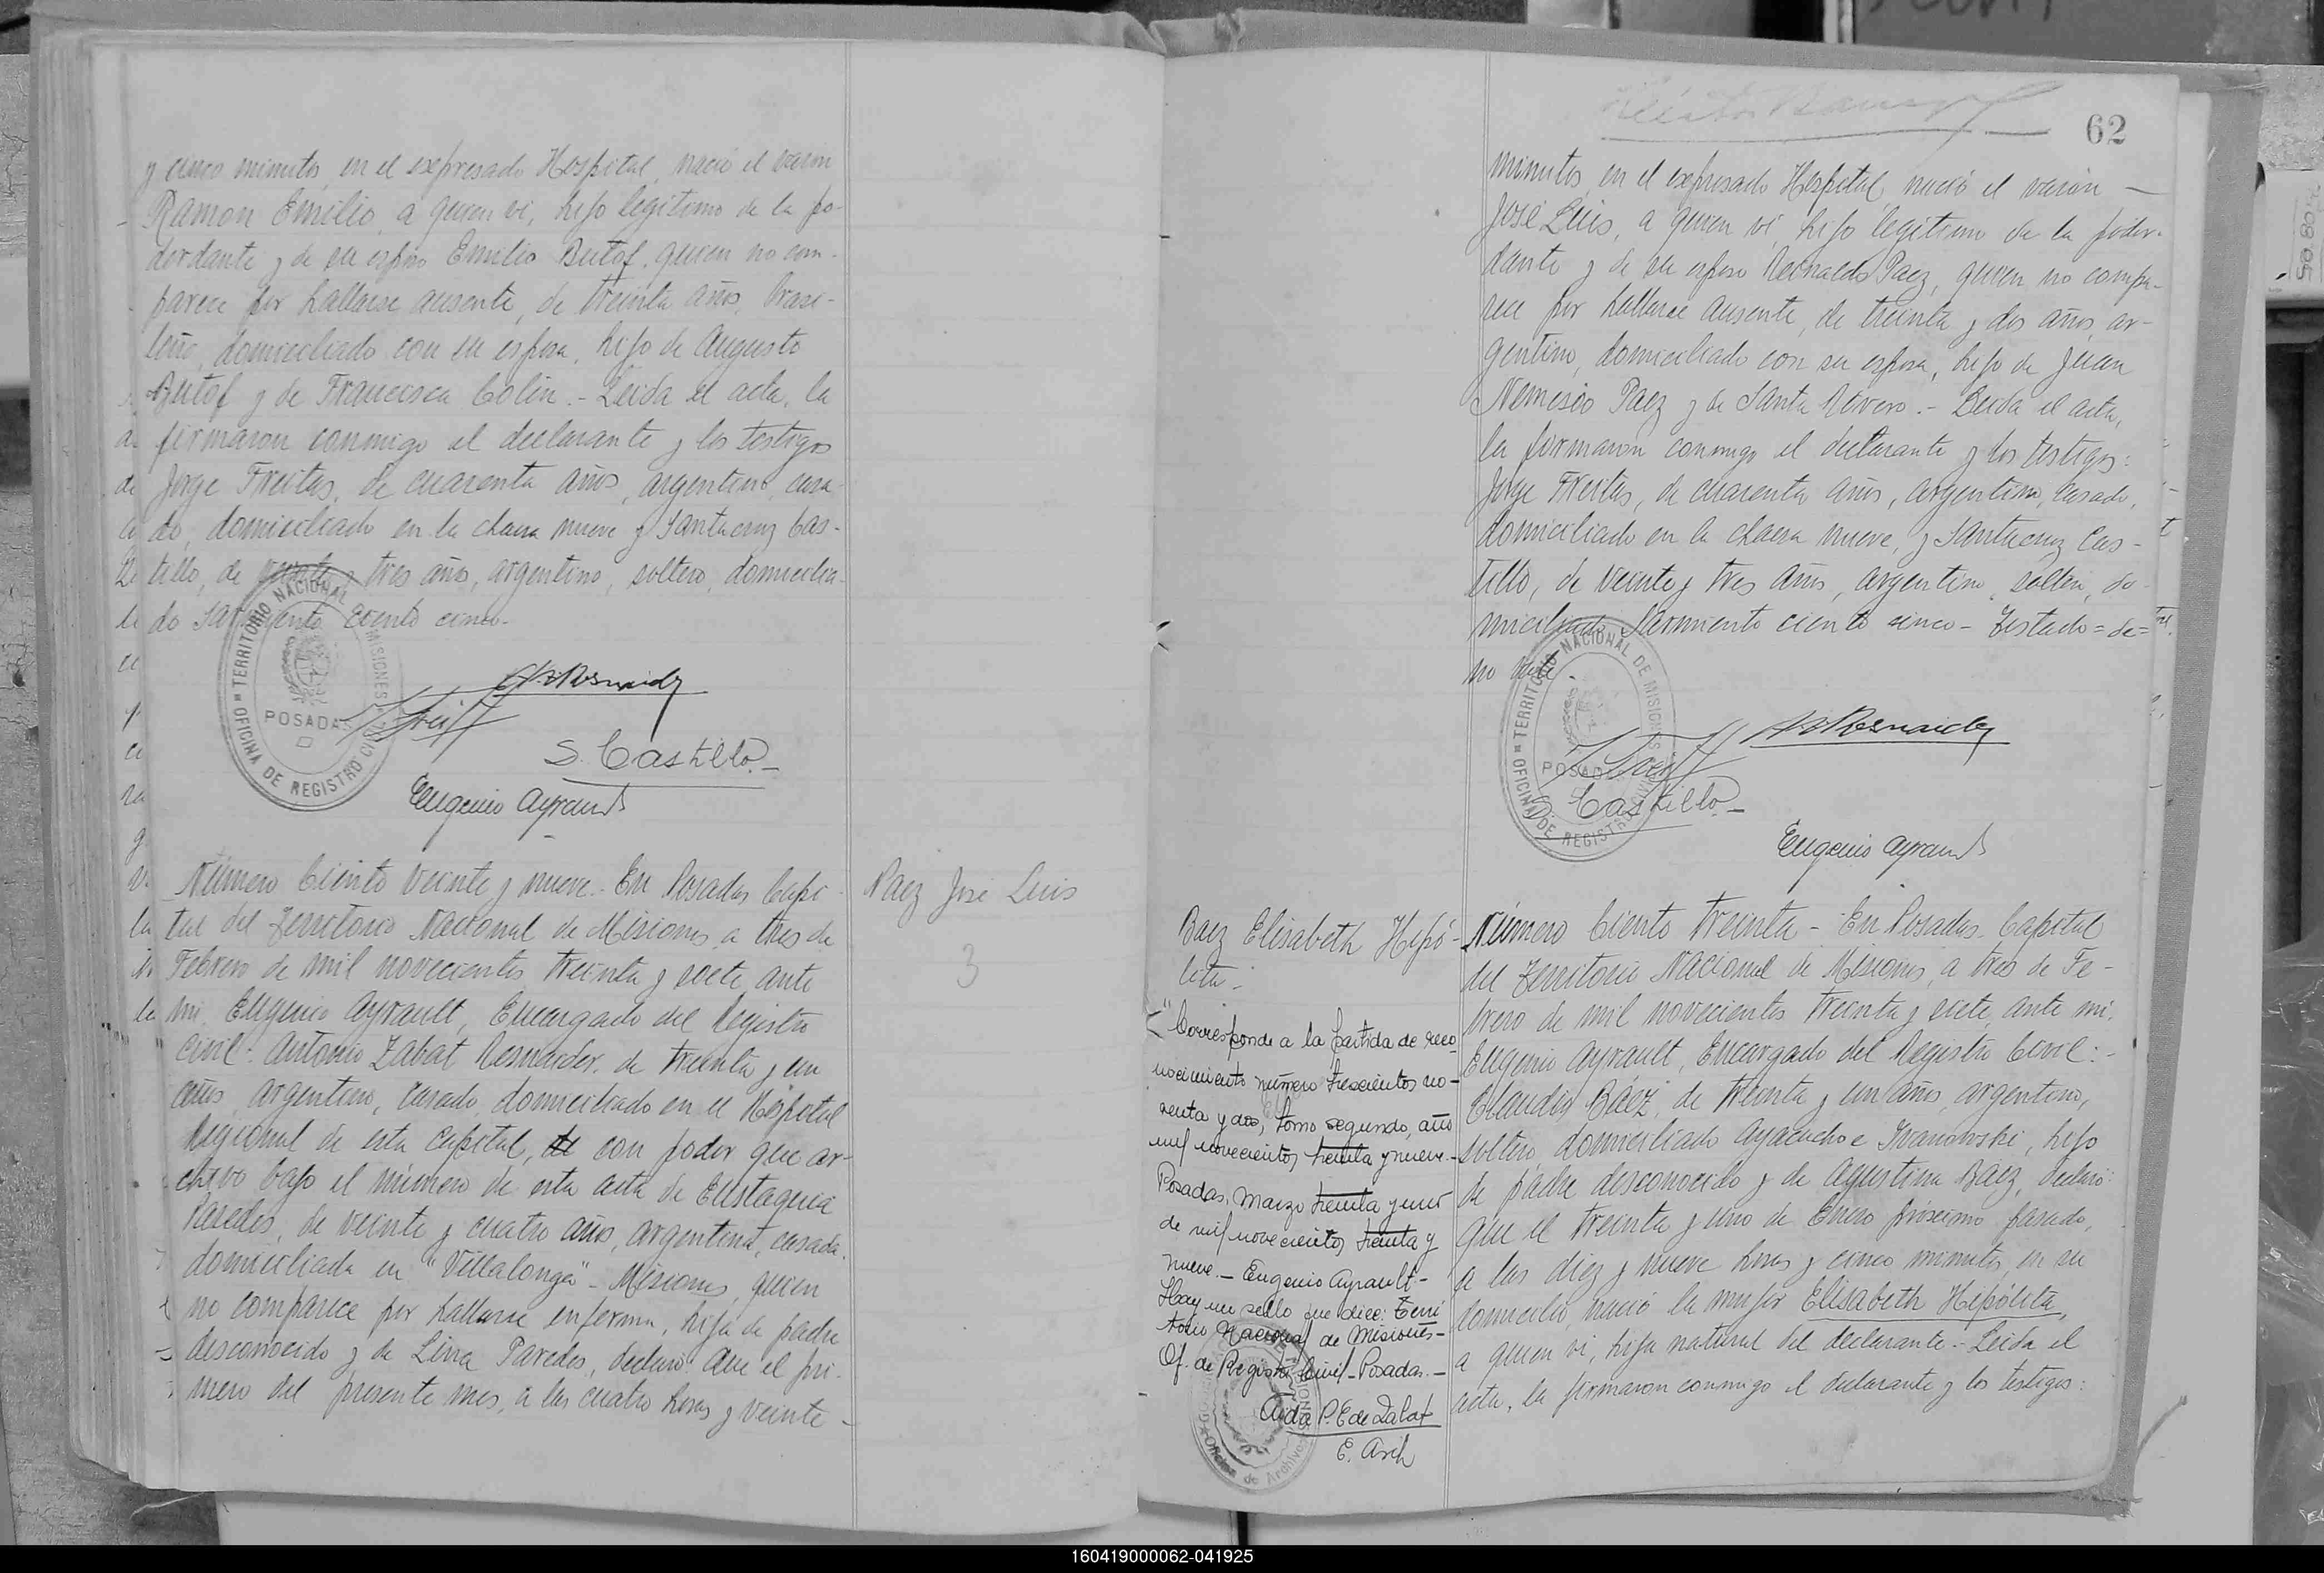 y cinco minutos, en el expresado Hospital, nació el varon
Ramon Emilio, a quien vi, hijo legitimo de la po-
derdante y de su esposo Emilio Butof, quien no com-
parece por hallarse ausente, de treinta años, brasi-
leño, domiciliado con su esposa, hijo de Augusto
Butof y de Francisca Colin.- Leida el acta, la
firmaron conmigo el declarante y los testigos
Jorge Freitas, de cuarenta años, argentino, casa-
do, domiciliado en la chacra nueve y Santacruz Cas-
tillo, de veinte y tres años, argentino, soltero, domicilia-
do Sarmiento ciento cinco.-
TERRITORIO NACIONAL MISIONES
OFICINA DE REGISTRO CIVIL
POSADAS
S. Castillo.-
Eugenio Ayrault
Número Ciento veinte y nueve.- En Posadas Capi-
tal del Territorio Nacional de Misiones, a tres de
Febrero de mil novecientos treinta y siete, ante
mi, Eugenio Ayrault, Encargado del Registro
Civil: Antonio Zabat Resnaider, de treinta y un
años, argentino, casado, domiciliado en el Hospital
Regional de esta Capital, de con poder que ar-
chivo bajo el número de esta acta de Eustaquia
Paredes, de veinte y cuatro años, argentina, casada,
domiciliada en "Villalonga" - Misiones, quien
no comparece por hallarse enferma, hija de padre
desconocido y de Lina Paredes, declaró: Que el pri-
mero del presente mes, a las cuatro horas y veinte
Paez José Luis
3
62
minutos, en el expresado Hospital, nació el varón
José Luis, a quien vi, hijo legitimo de la poder-
dante y de su esposo Reinaldo Paez, quien no compa-
rece por hallarse ausente, de treinta y dos años, ar-
gentino, domiciliado con su esposa, hijo de Juan
Nemesio Paez y de Santa Rivero.- Leida el acta,
la firmaron conmigo el declarante y los testigos:
Jorge Freitas, de cuarenta años, argentino, casado,
domiciliado en la chacra nueve, y Santacruz Cas-
tillo, de veinte y tres años, argentino, soltero, do-
miciliado Sarmiento ciento cinco- Testado=de=
no vale.
TERRITORIO NACIONAL DE MISIONES
OFICINA DE REGISTRO CIVIL
POSADAS
S. Castillo.-
Eugenio Ayrault
Baez Elisabeth Hipó-
lita.-
"Corresponde a la partida de reco-
nocimiento número trescientos no-
venta y dos, tomo segundo, año
mil novecientos treinta y nueve.-
Posadas, Marzo treinta y uno
de mil novecientos treinta y
nueve.- Eugenio Ayrault-
Hay un sello que dice: Terri
torio Nacional de Misiones-
Of. de Registro Civil-Posadas.-
Aida P. E de Zabat
Oficina de Archivo
Número Ciento treinta - En Posadas, Capital
del Territorio Nacional de Misiones, a tres de Fe-
brero de mil novecientos treinta y siete, ante mi,
Eugenio Ayrault, Encargado del Registro Civil:-
Claudio Báez, de treinta y un años, argentino,
soltero, domiciliado Ayacucho e Ivanowski, hijo
de padre desconocido y de Agustina Báez, declaró:
Que el treinta y uno de Enero próximo pasado,
a las diez y nueve horas y cinco minutos, en su
domicilio, nació la mujer Elisabeth Hipólita,
a quien vi, hija natural del declarante.- Leida el
acta, la firmaron conmigo el declarante y los testigos:
160419000062-041925